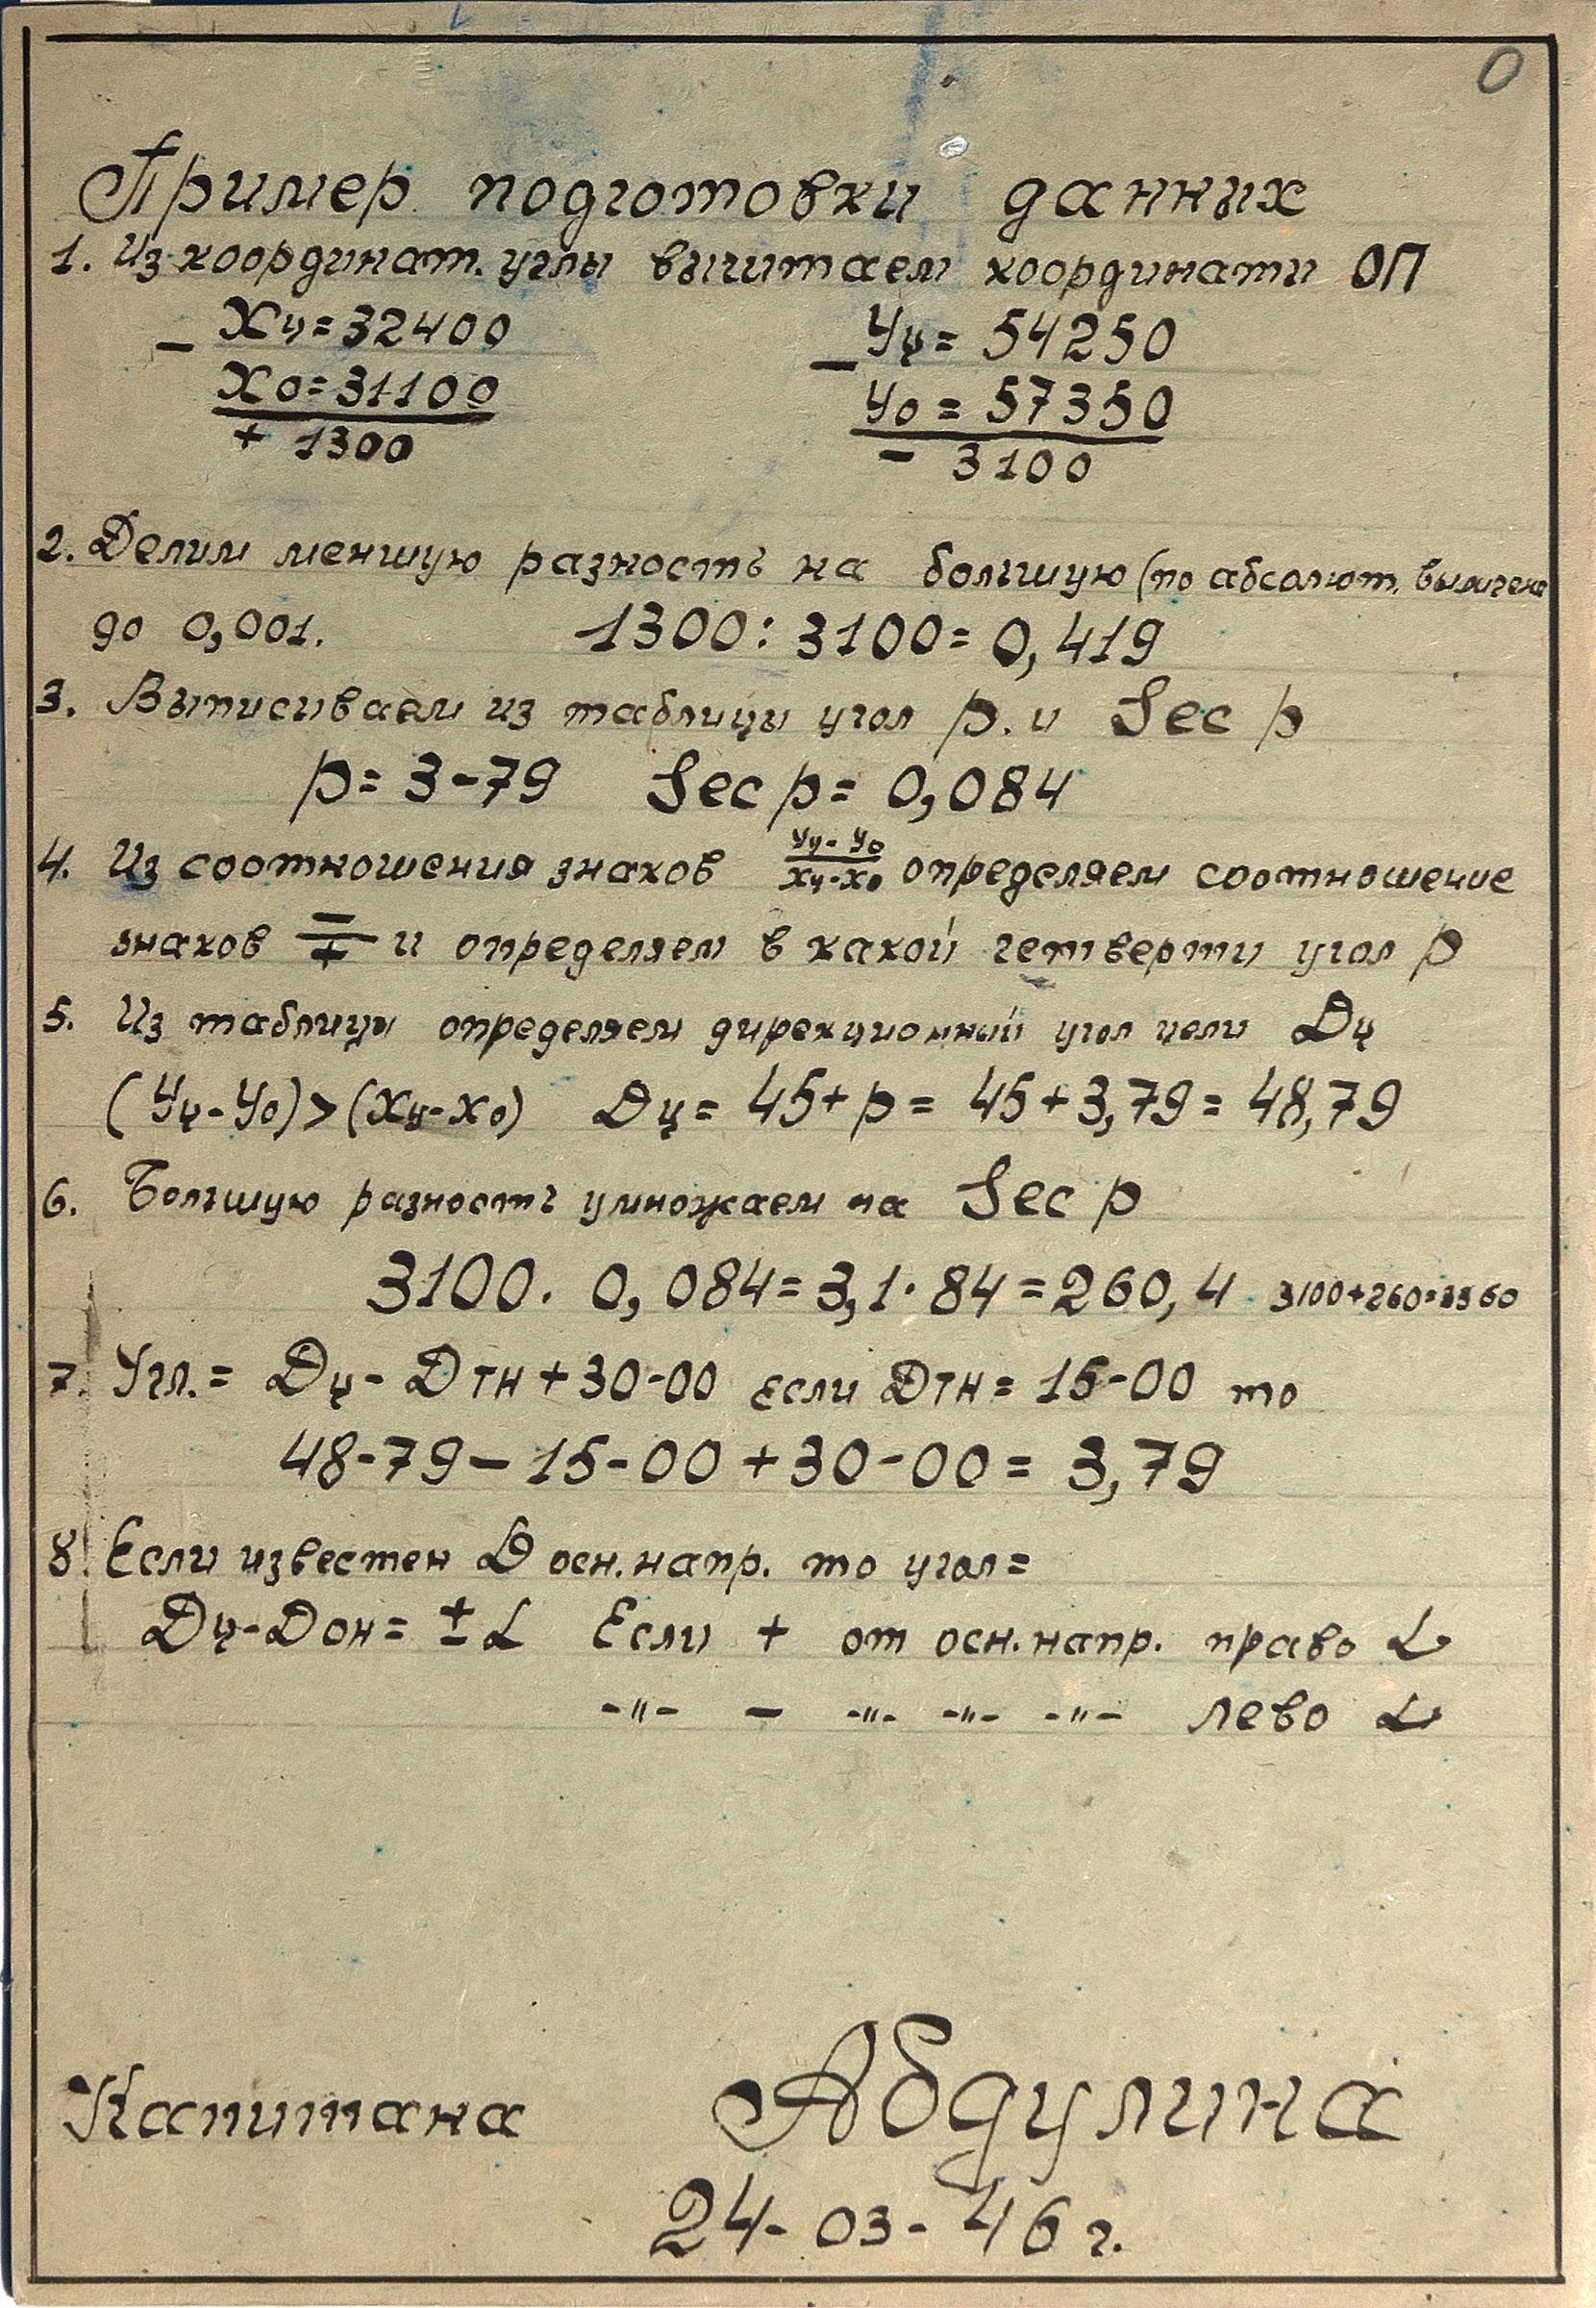 0
Пример подготовки данных
1. Из координат. углы вычитаем координаты ОП
− Xц=32400 −Yц= 54250
X0=31100 Y0= 57350
+ 1300 − 3100
2. Делим меншую разность на большую (по абсолют.
до 0,001. 1300:3100=0,419
3. Выписываем из таблицы угол p. и Sec p
p=3-79 Sec p= 0,084
4. Из соотношения знаков Yц-Y0/Xц-X0 определяем соотношение
знаков −/+ и определяем в какой четверти угол p
5. Из таблицы определяем дирекционный угол цели Dц
(Yц-Y0)>(Xц-X0) Dц= 45+p= 45+3,79= 48,79
6. Большую разность умножаем на Sec p
3100. 0,084=3,1·84=260,4 3100+260=3360
7. Угл.= Dц- Dтн+30-00 если Dтн= 15-00 то
48-79−15-00+30-00= 3,79
8. Если известен D осн.напр. то угол=
Dц-Dон= ±L Если + от осн.напр. право L
-"- − -"- -"- -"- лево L
Капитана Абдулина
24-03-46 г.